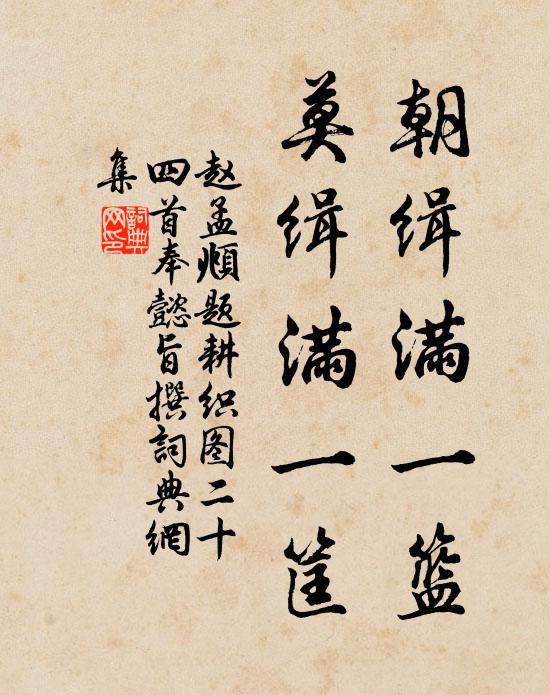 朝缉满一篮
莫缉满一筐
赵孟頫题耕织图二十
四首奉懿旨撰詞典網
集
詞典
网印